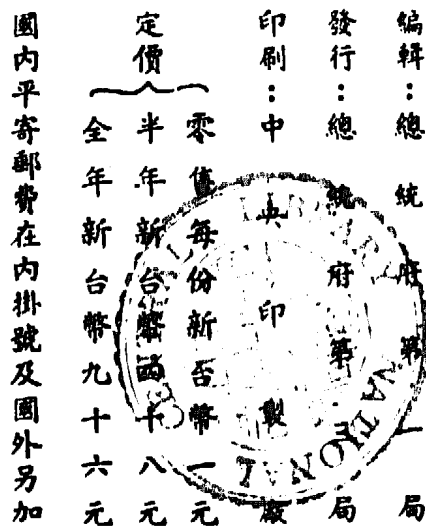 編輯：總統府第一局
發行：總統府第三局
印刷：中央印製廠
定價
零售每份新台幣一元
半年新台幣四十八元
全年新台幣九十六元
國內平寄郵費在內掛號及國外另加
NATIONAL
LIBRARY